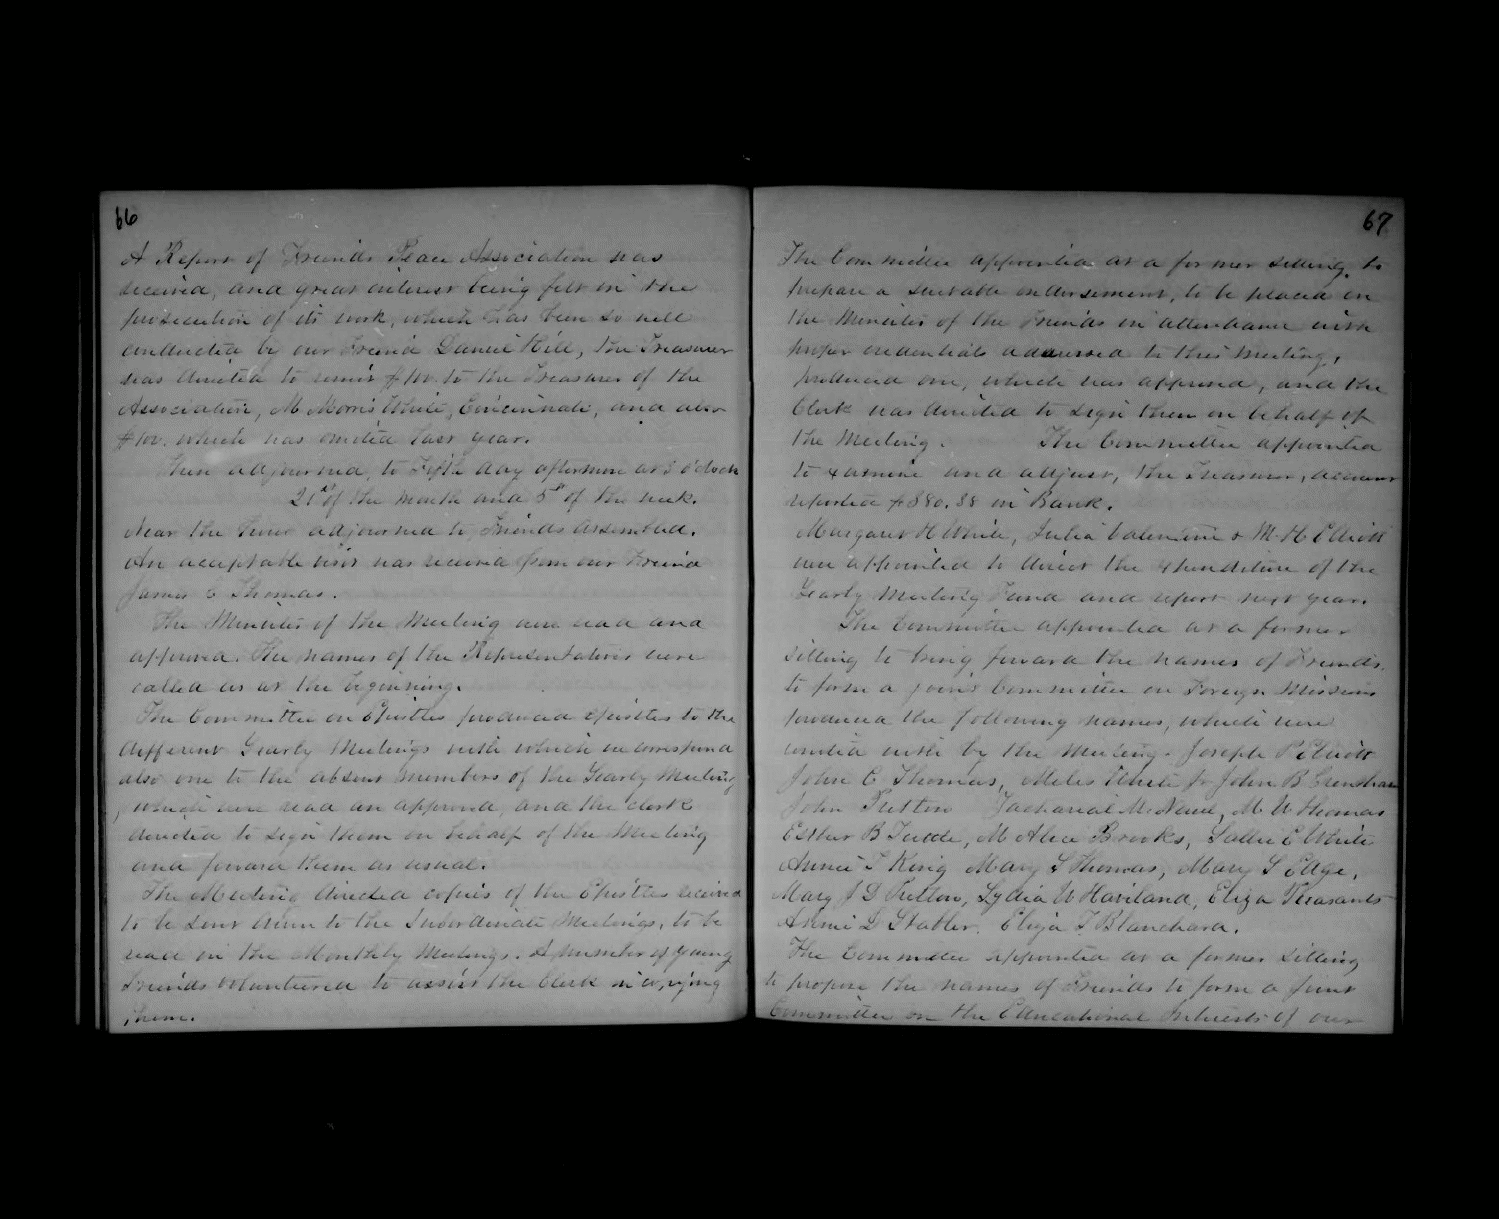 66
A Report of Friends Peace Association was
received, and great interest being felt in the
prosecution of its work, which has been so well
conducted by our Friend Daniel Hill, the Treasurer
was directed to remit $100. to the Treasurer of the
Association, M. Morris White, Cincinnati, and also
$100. which was omitted last year.
Then adjourned, to Fifth day afternoon at 3 o'clock
21st of the month and 5th of the week.
Near the time adjourned to, Friends assembled.
An acceptable visit was received from our Friend
James C Thomas.
The Minutes of the Meeting were read and
approved. The names of the Representatives were
called as at the beginning.
The Committee on Epistles produced epistles to the
different Yearly Meetings with which we correspond
also one to the absent members of the Yearly Meeting
, which were read an approved, and the clerk
directed to sign them on behalf of the Meeting
and foward them as usual.
The Meeting directed copies of the Epistles received
to be sent down to the Subordinate Meetings, to be
read in the Monthly Meetings. A number of young
Friends volunteered to assist the Clerk in copying
them.
67
The Committee appointed at a former sitting, to
prepare a suitable endorsement, to be placed on
the Minutes of the Friends in attendance with
proper credentials addressed to this meeting,
produced one, which was approved, and the
Clerk was directed to sign them on behalf of
the Meeting. The Committee appointed
to examine and adjust, the Treasurers, account
reported $880.38 in Bank.
Margaret H White, Julia Valentine & M. H Elliott
were appointed to direct the expenditure of the
Yearly Meeting Fund and report next year.
The Committee appointed at a former
sitting to bring foward the names of Friends,
to form a joint Committee on Foreign Missions
produced the following names, which were
united with by the Meeting. Joseph P Elliott
John C. Thomas, Miles White Jr John B Crenshaw
John Pretlow Zachariah McNaul, M. W Thomas
Esther B Tuttle, M Alice Brooks, Sallie E White
Annie T King Mary S Thomas, Mary S Edge,
Mary J D Pretlow, Lydia W Haviland, Eliza Pleasants
Annie D Stabler. Eliza T Blanchard.
The Committee appointed at a former sitting
to propose the names of Friends to form a joint
Committee on the Educational Interests of our